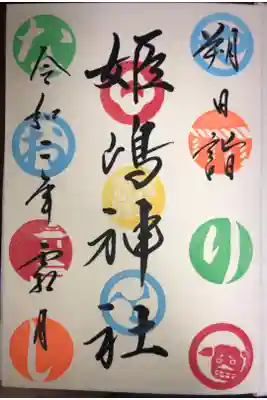 朔日詣
姫嶋神社
令和二年霜月
り
な
お
し